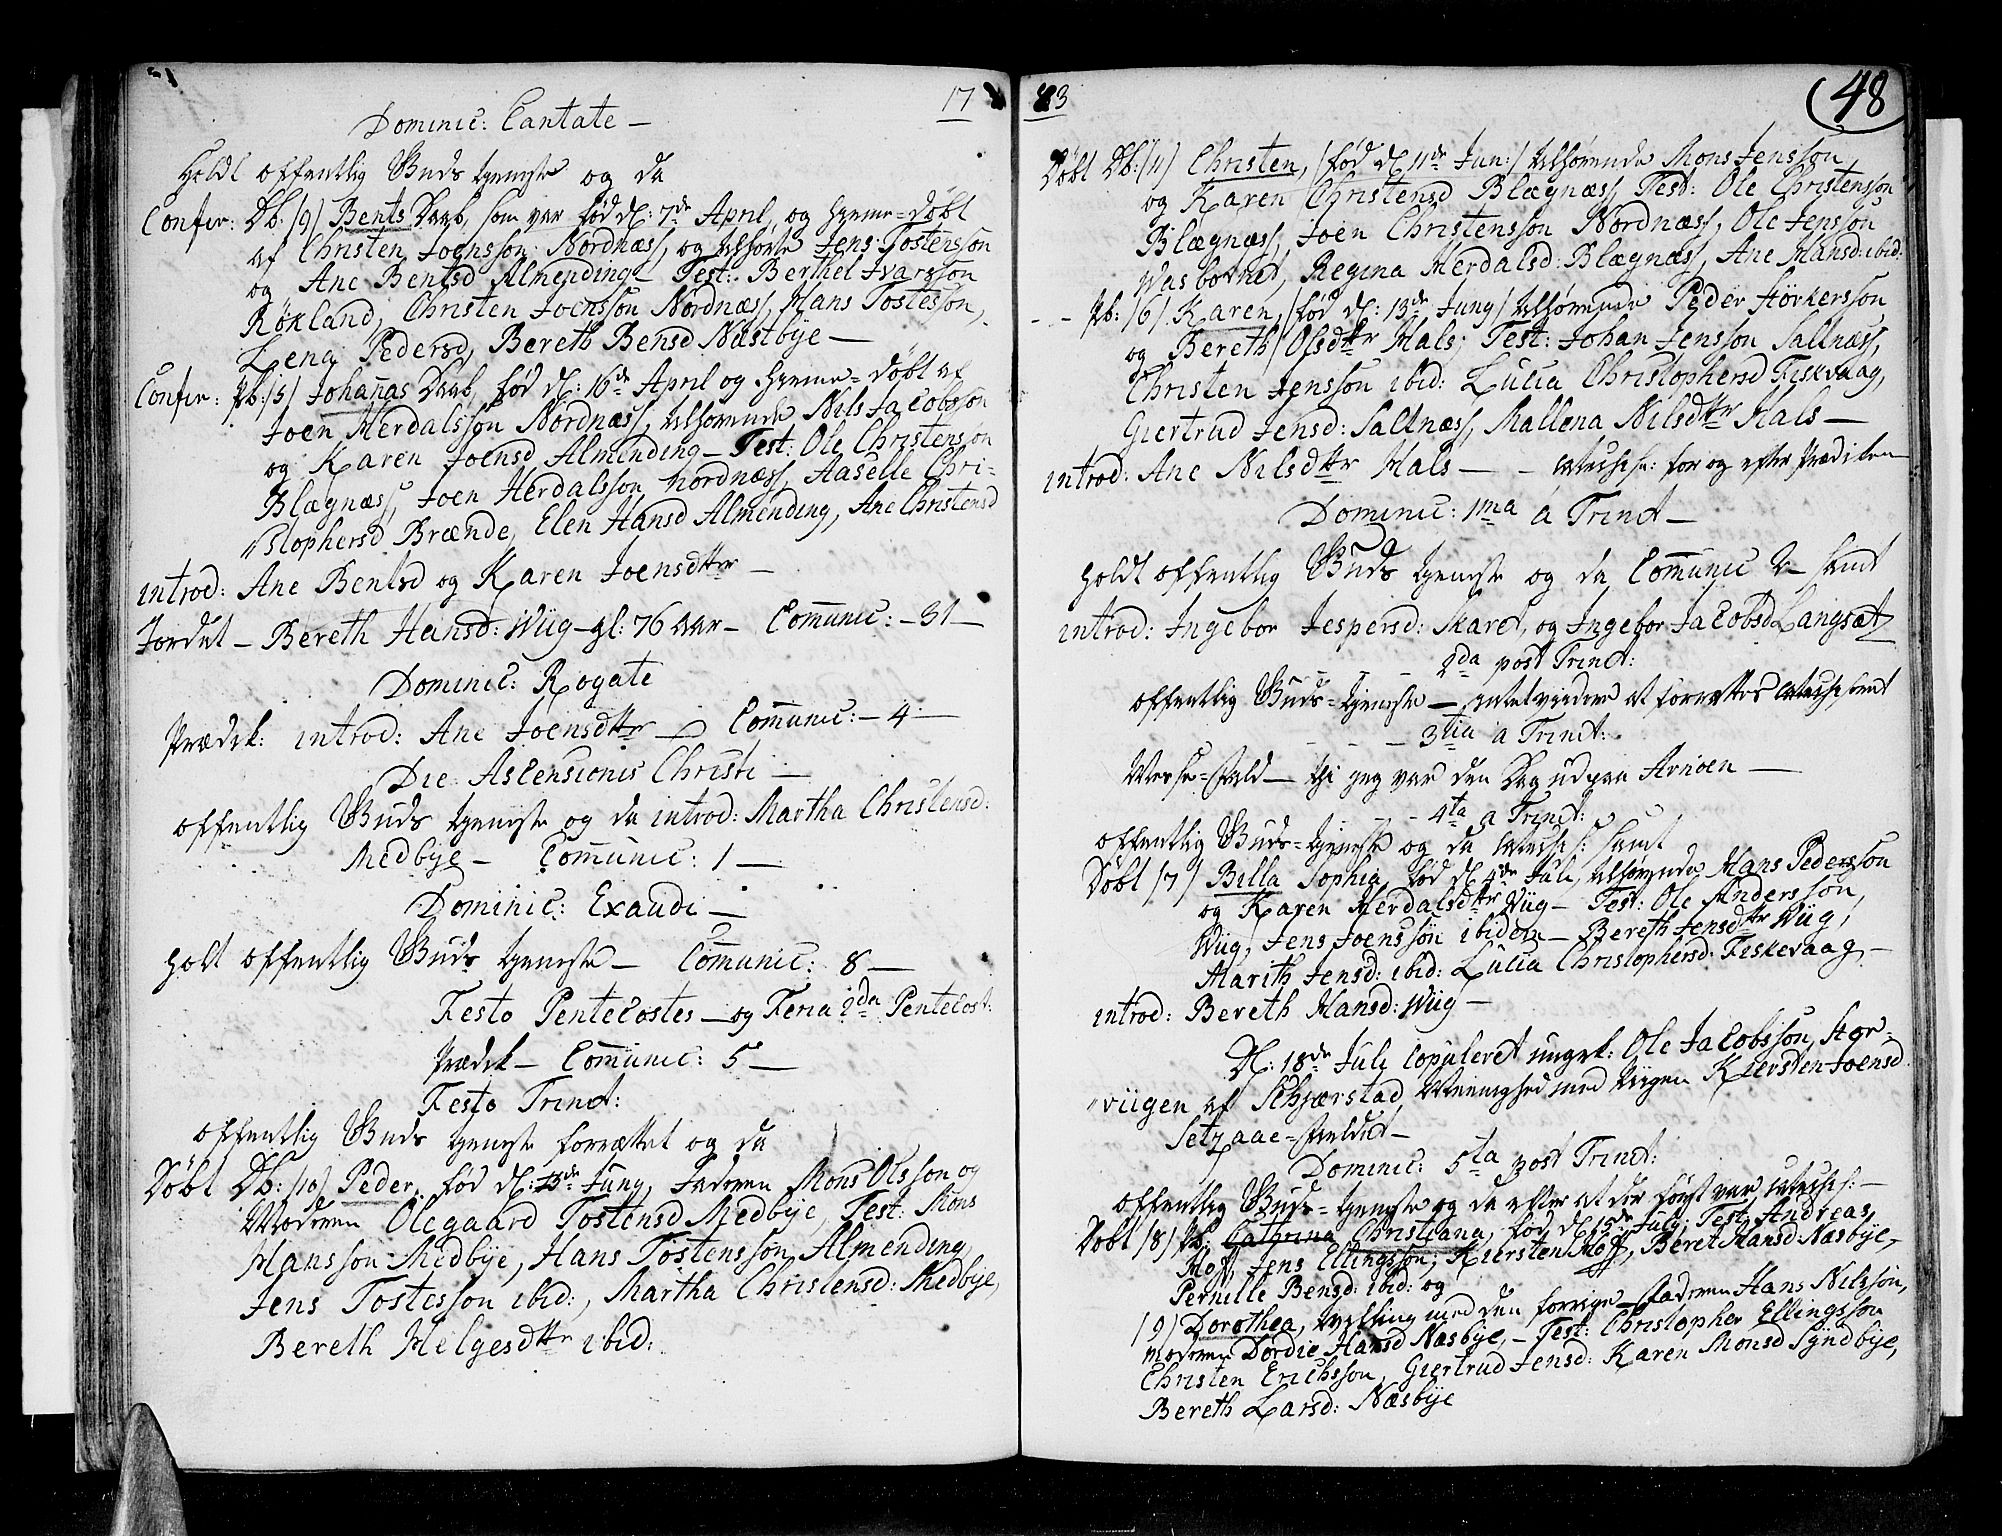 17
Dominic: Cantate —
Holdt offentlig Guds tieneste og da
Confir: Db: (9) Bents Daab, som var fød d: 7de April, og hjeme=døbt
af Christen Joensson Nordnæss, og tilhørte Jens Tostensson
og Ane Bentsd Almending — Test: Berthel Ivarsson
Røkland, Christen Joensson Nordnæss, Hans Tostesson,
Lena Pedersd, Bereth Bensd Næstbÿe —
Confir: Pb: (5) Johañas Daab, fød d: 16de April og hjeme=døbt af
Joen Herdalsson Nordnæss, tilhørende Nils Jacobsson
og Karen Joensd Almending — Test: Ole Christensson
Blægnæss, Joen Herdalsson nordnæss, Aaselle Chri-
"stophersd Brænde, Elen Hansd Almending, Ane Christensd
introd: Ane Bentsd og Karen Joensdttr —
Jordet — Bereth Hansd: Wiig — gl: 76 aar — Com̄unic: — 31 —
Dominic: Rogate
Prædik: introd: Ane Joensdttr — Com̄unic: — 4 —
Die Ascensionis Christi —
offentlig Guds tieneste og da introd: Martha Christensd:
Medbÿe — Com̄unic: 1 —
Dominic: Exaudi —
holt offentlig Guds tieneste — Com̄unic: 8 —
Festo Pentecostes — og Feria 2da Pentecost:
Prædik — Com̄unic: 5 —
Festo Trinit:
offentlig Guds tieneste forrættet og da
Døbt Db: (10) Peder, fød d: 13de Juny, Faderen Mons Olsson og
Moderen Olegaard Tostensd Medbÿe, Test: Mons
Hansson Medbÿe, Hans Tostensson Almending,
Jens Tostesson ibid:, Martha Christensd: Medbÿe,
Bereth Helgesdttr ibid:
83
48
Døbt Db: (11) Christen, (fød d: 11de Jun:) tilhørende Mons Jensson,
og Karen Christensd Blægnæss, Test: Ole Christensson
Blægnæss, Joen Christensson Nordnæss, Ole Jensson
Wasbotnet, Regina Herdalsd: Blægnæss, Ane Hansd: ibid:
- - Pb: (6) Karen, (fød d: 13de Juny) tilhørende Peder Størkersson
og Bereth Olsdttr Hals, Test: Johan Jensson Saltnæss,
Christen Jensson ibid: Lucia Christophersd Fiskvaag,
Giertrud Jensd: Saltnæss, Mallena Nilsdttr Hals —
introd: Ane Nilsdttr Hals — - catechis: for og efter Prædiken
Dominic: 1ma a Trinit —
holdt offentlig Guds tieneste og da Com̄unic 2 — samt
introd: Ingebor Jespersd: Skaret, og Ingebor Jacobsd Langsæt
- - - 2da post Trinit:
offentlig Guds=tieneste — intet viidere at forrettes catechis: samt
- - - 3tia a Trinit:
Messe=Fald — thi jeg var den Dag ud paa Arnøen —
- - - 4ta a Trinit:
offentlig Guds=tieneste og da catechis: samt
Døbt (7) Billa Sophia, fød d: 4de Juli, tilhørende Hans Pedersson
og Karen Herdalsdttr Wiig — Test: Ole Andersson,
Wiig, Jens Joensson ibidem — Bereth Jensdttr Wiig,
Marith Jensd: ibid: Lucia Christophersd: Fiskevaag —
introd: Bereth Hansd: Wiig —
D: 18de Juli copuleret ungk: Ole Jacobsson, Stor-
"viigen af Schjærstad Meenighed med Piigen Kiersten Joensd
Setzaae=Fieldet —
Dominic: 5ta post Trinit:
offentlig Guds=tieneste og da efter at der først var catechis: —
Døbt (8) Pb: Cathrina Christiana, fød d: 15de July: Test: Andreas
Moss, Jens Ellingsson, Kiersten Moss, Beret Hansd Næsbÿe,
Pernille Bensd: ibid: og
(9) Dorothea, tvilling med den forrige — Faderen Hans Nilsson,
moderen Dordie Hansd Næsbÿe, — Test: Christopher Ellingsson
Christen Erichsson, Giertrud Jensd: Karen Monsd Syndbÿe,
Bereth Larsd: Næsbÿe